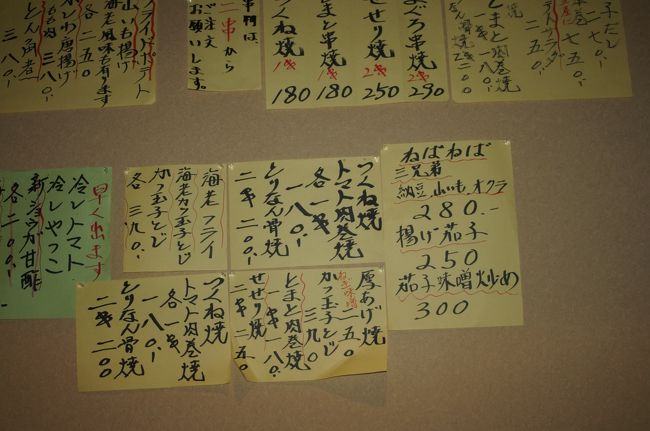 フライドポテト
山いも揚げ
海老風味も有ります
各二五〇
三八〇.-
串物は、
二串から
ご注文
お願いします。
まぐろ串焼
2本
290
せせり焼
2本
250
とまと串焼
1本
180
つくね焼
1本
180
とまと肉巻焼
一八〇.-
なん骨焼
早く出ます
冷しトマト
冷しやっこ
新ショウガ甘酢
各二〇〇.-
海老フライ
海老カツ玉子とじ
かつ玉子とじ
各 三九〇.-
つくね焼
トマト肉巻焼
各一串
一八〇.-
とりなん骨焼
二串 二〇〇.-
ねばねば
三兄弟
納豆、山いも、オクラ
280.-
揚げ茄子
250
茄子味噌炒め
300
つくね焼
トマト肉巻焼
各一串
一八〇.-
とりなん骨焼
二串 二〇〇
厚あげ焼
ねぎ味噌
二五〇
かつ玉子とじ
三九〇
とまと肉巻焼
一串 一八〇.-
せせり焼
二串 二五〇